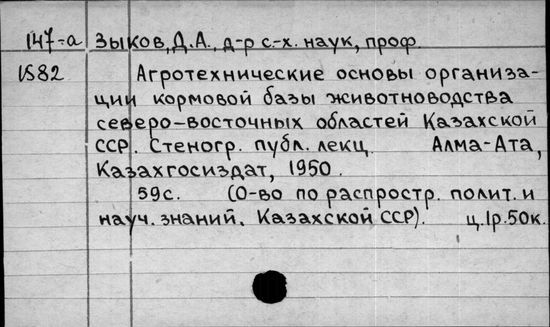 147-а Зыков, Д.А., д-р с.-х. наук, проф.
1582 Агротехнические основы организа-
ции кормовой базы животноводства
северо-восточных областей Казахской
ССР. Стеногр. публ. лекц. Алма-Ата,
Казахгосиздат, 1950.
59с. (О-во по распростр. полит. и
науч. знаний. Казахской ССР). ц.1р.50к.